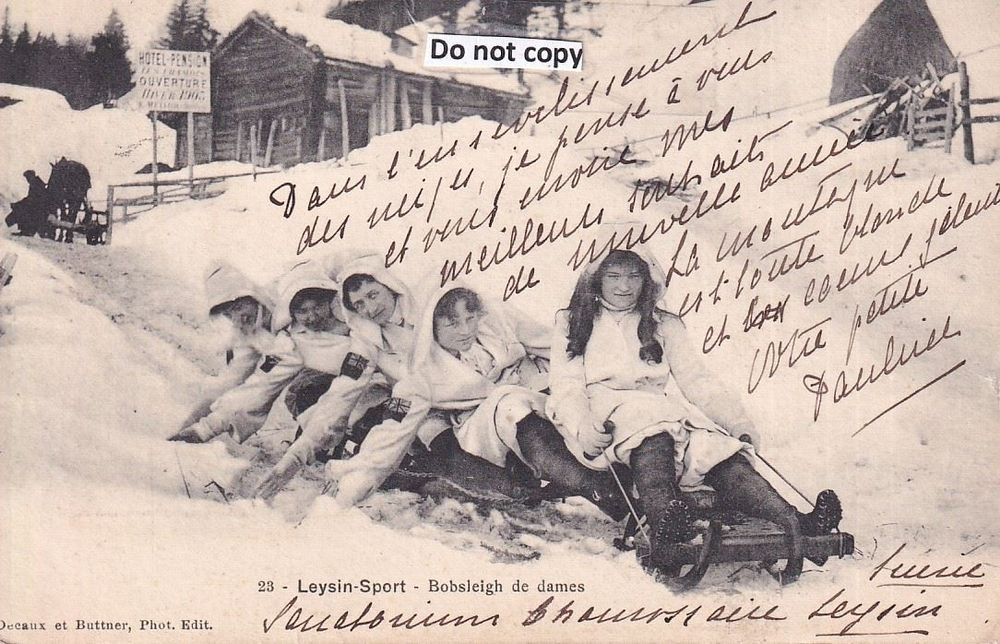 Do not copy
HOTEL-PENSION
OUVERTURE
HIVER 1905
Dans l'ensevelissement
des neiges, je pense à vous
et vous envoie mes
meilleurs souhaits
de nouvelle année
La montagne
est toute blanche
et les coeurs
Votre petite
Pauline
23 - Leysin-Sport - Bobsleigh de dames
Suisse
Sanatorium Chamossaire Leysin
Decaux et Buttner, Phot. Edit.